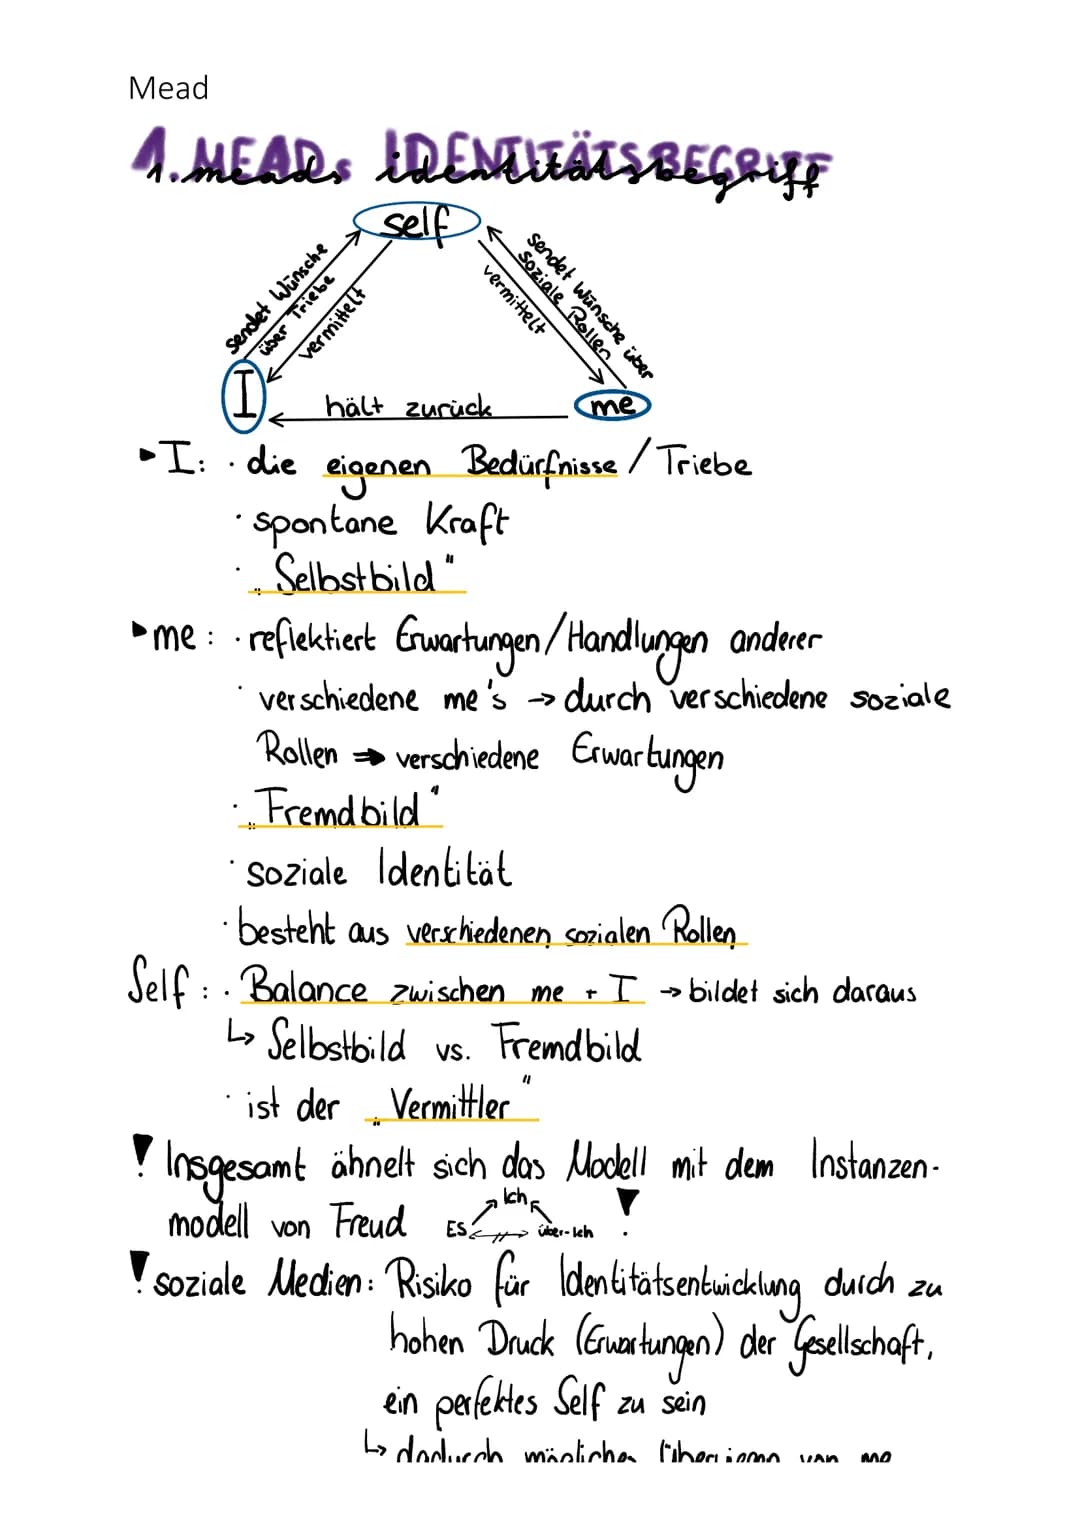 Mead
1. MEADs IDENTITÄTSBEGRIFF
meads identitätsbegriff
self
sendet Wünsche
über Triebe
vermittelt
sendet Wünsche über
soziale Rollen
vermittelt
I
hält zurück
me
▸I: · die eigenen Bedürfnisse / Triebe
· spontane Kraft
· „Selbstbild"
▸me: · reflektiert Erwartungen/Handlungen anderer
· verschiedene me's → durch verschiedene soziale
Rollen ⇒ verschiedene Erwartungen
· „Fremdbild"
· soziale Identität
· besteht aus verschiedenen sozialen Rollen
Self: · Balance zwischen me + I → bildet sich daraus
↳ Selbstbild vs. Fremdbild
· ist der „Vermittler"
! Insgesamt ähnelt sich das Modell mit dem Instanzen-
modell von Freud ES Ich über-Ich !
! soziale Medien: Risiko für Identitätsentwicklung durch zu
hohen Druck (Erwartungen) der Gesellschaft,
ein perfektes Self zu sein
↳ dadurch von me